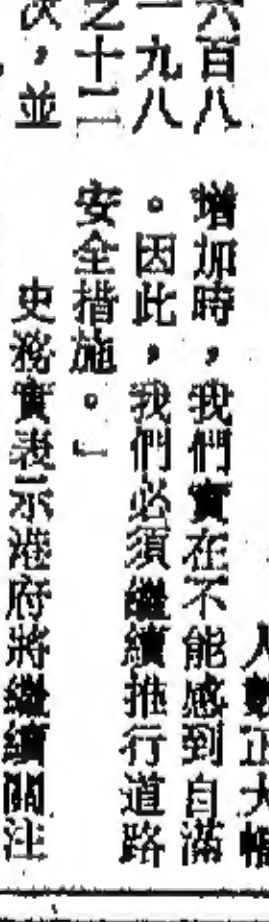 六百八
一九八
之十二
次，並
人數正大幅
增加時，我們實在不能感到自滿
。因此，我們必須繼續推行道路
安全措施。」
史務實表示港府將繼續關注